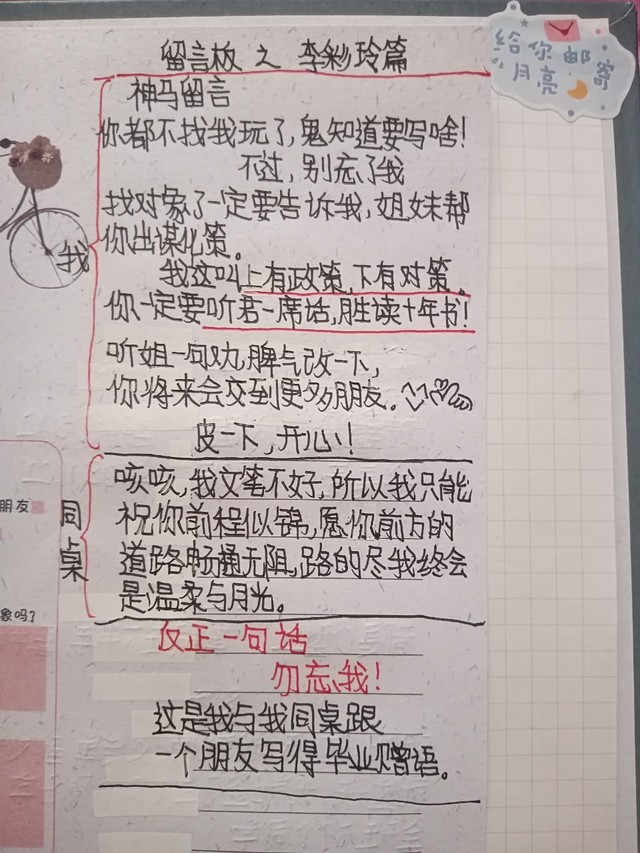 留言板之李彩玲篇
给你邮寄
小月亮
神马留言
你都不找我玩了,鬼知道要写啥!
不过,别忘了我
找对象了一定要告诉我,姐妹帮
你出谋化策。
我这叫上有政策,下有对策。
你一定要听君一席话,胜读十年书!
我
听姐一句劝,脾气改一下,
你将来会交到更多朋友。
皮一下,开心!
咳咳,我文笔不好,所以我只能
祝你前程似锦,愿你前方的
道路畅通无阻,路的尽我终会
是温柔与月光。
同桌
朋友
象吗?
反正一句话
勿忘我!
这是我与我同桌跟
一个朋友写得毕业赠语。